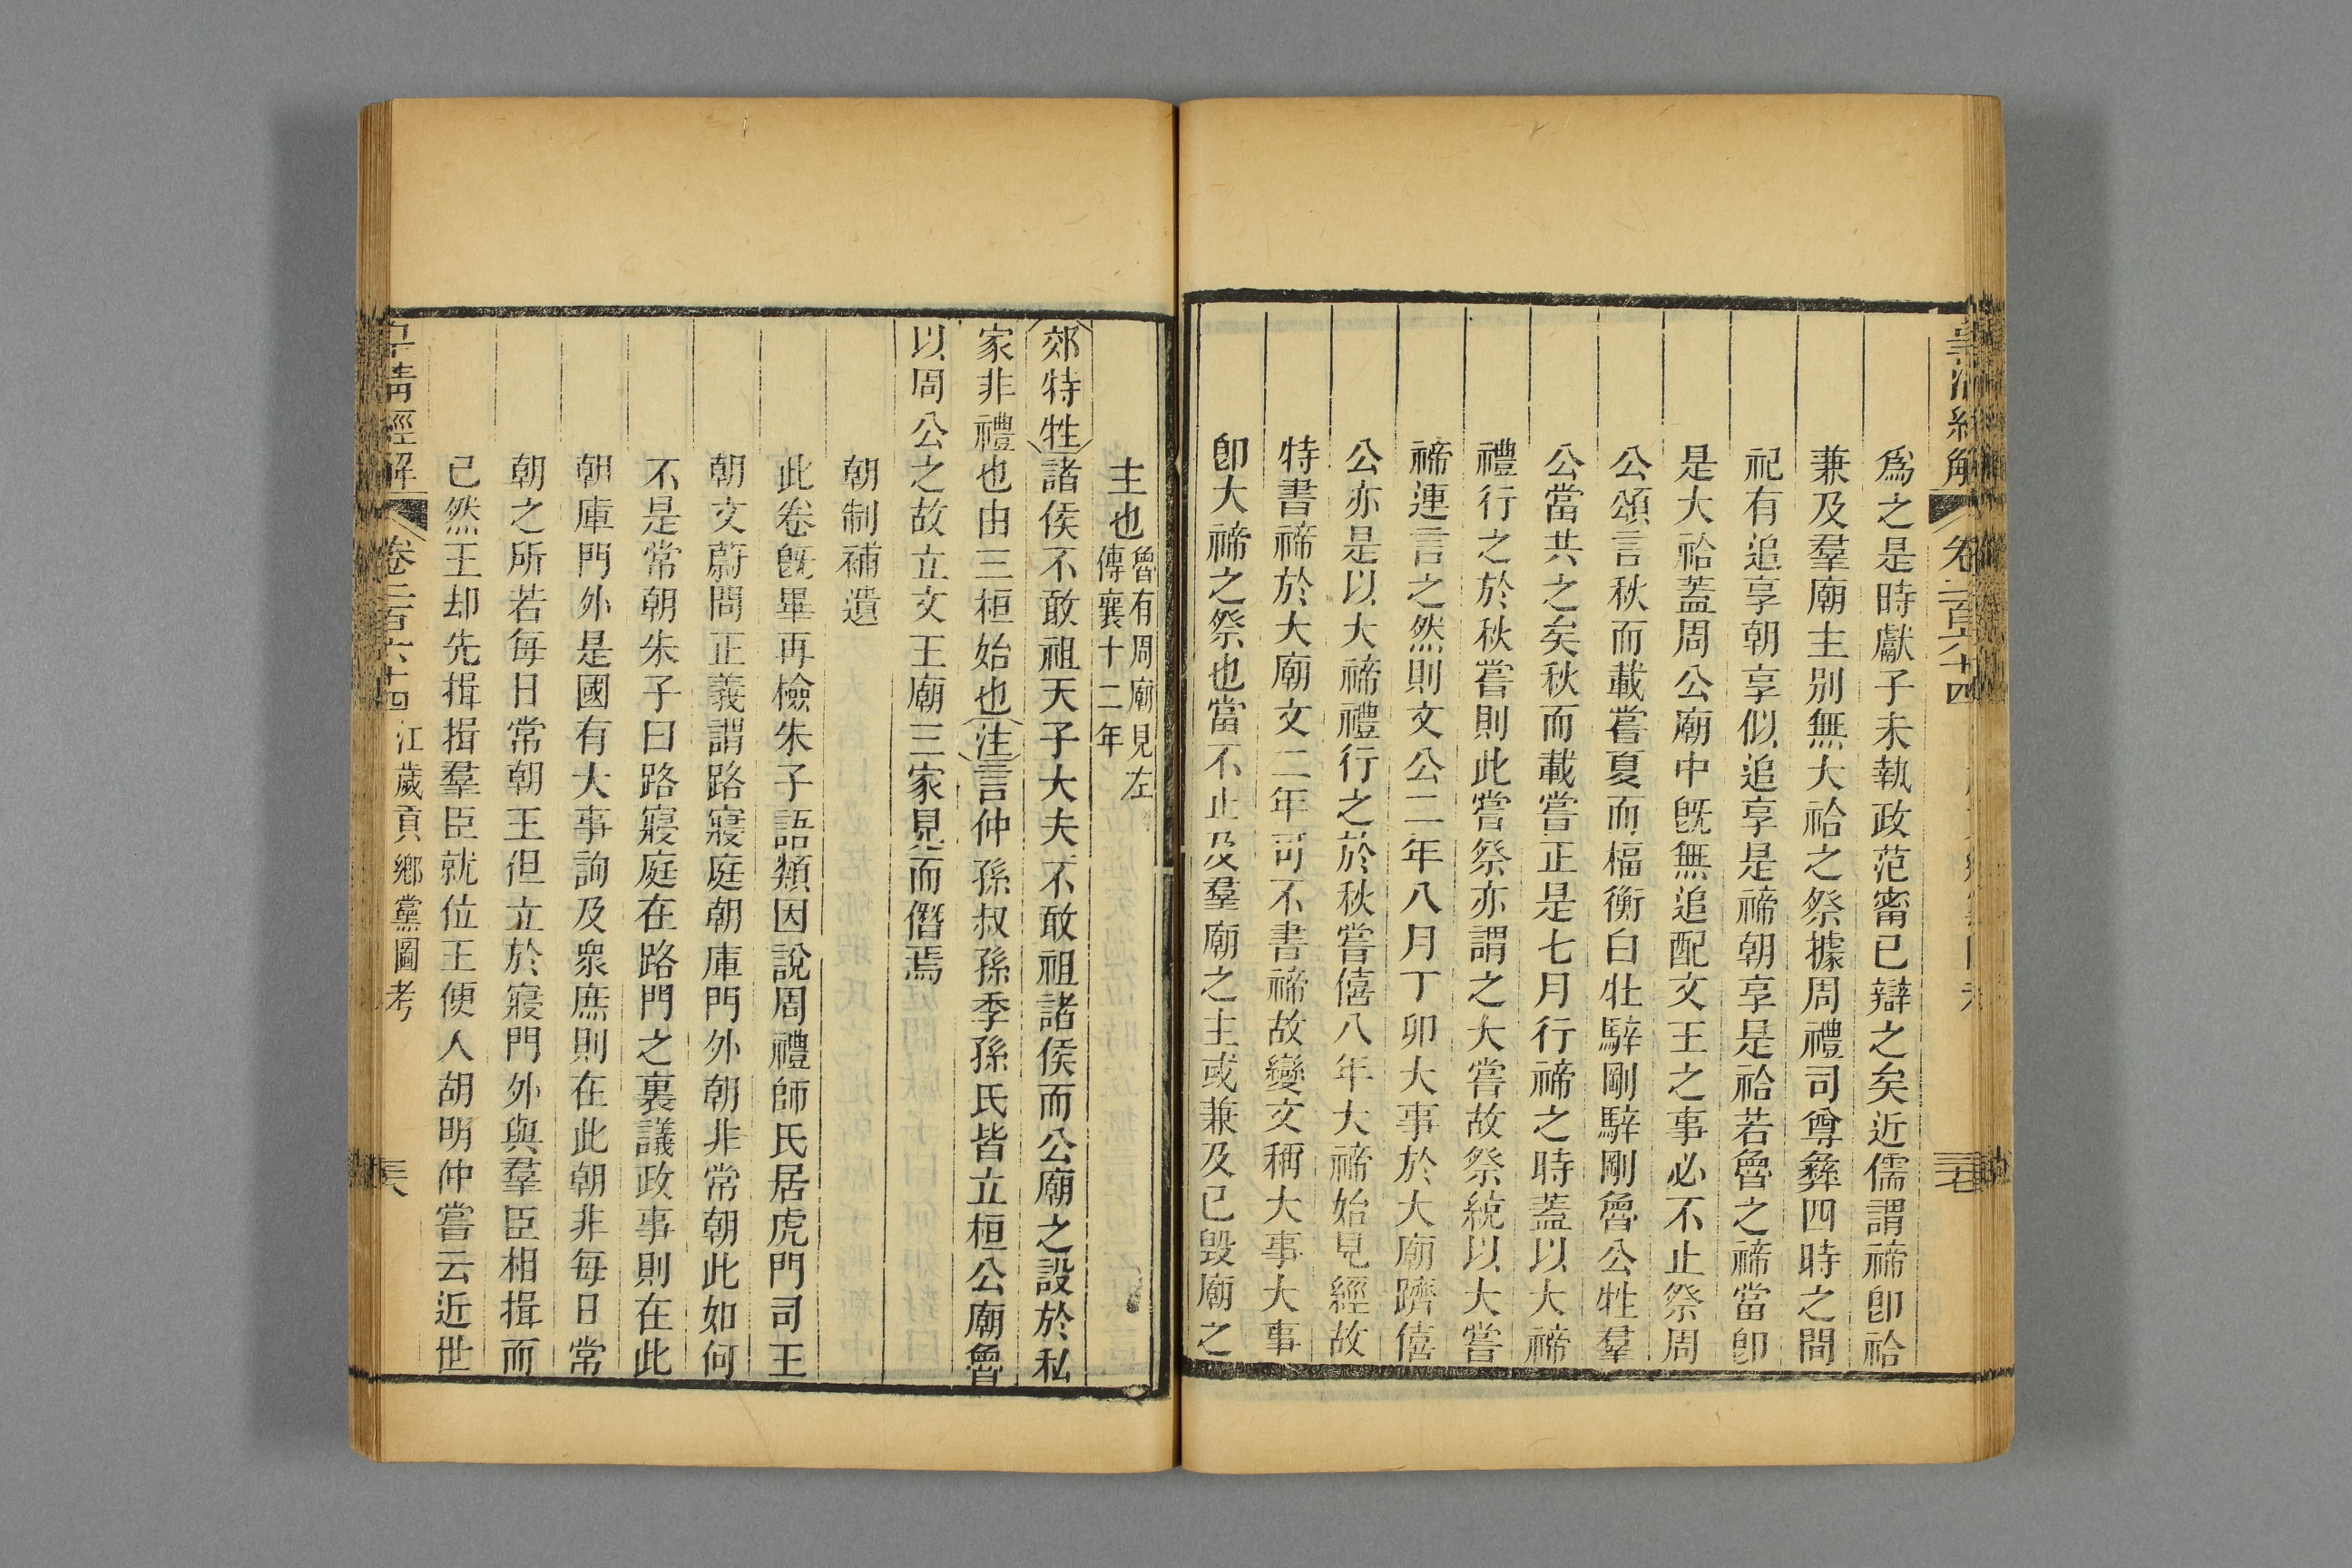 皇清經解 卷二百六十四 三十七
爲之是時獻子未執政范甯已辯之矣近儒謂禘卽祫
兼及羣廟主別無大祫之祭據周禮司尊彝四時之間
祀有追享朝享似追享是禘朝享是祫若魯之禘當卽
是大祫蓋周公廟中旣無追配文王之事必不止祭周
公頌言秋而載嘗夏而楅衡白牡騂剛騂剛魯公牲羣
公當共之矣秋而載嘗正是七月行禘之時蓋以大禘
禮行之於秋嘗則此嘗祭亦謂之大嘗故祭統以大嘗
禘連言之然則文公二年八月丁卯大事於大廟躋僖
公亦是以大禘禮行之於秋嘗僖八年大禘始見經故
特書禘於大廟文二年可不書禘故變文稱大事大事
卽大禘之祭也當不止及羣廟之主或兼及已毀廟之
主也魯有周廟見左傳襄十二年
郊特牲諸侯不敢祖天子大夫不敢祖諸侯而公廟之設於私
家非禮也由三桓始也注言仲孫叔孫季孫氏皆立桓公廟魯
以周公之故立文王廟三家見而僭焉
朝制補遺
此卷旣畢再檢朱子語類因說周禮師氏居虎門司王
朝文蔚問正義謂路寢庭朝庫門外朝非常朝此如何
不是常朝朱子曰路寢庭在路門之裏議政事則在此
朝庫門外是國有大事詢及衆庶則在此朝非每日常
朝之所若每日常朝王但立於寢門外與羣臣相揖而
已然王却先揖揖羣臣就位王便人胡明仲嘗云近世
皇清經解 卷二百六十四 江歲貢鄉黨圖考 三十八